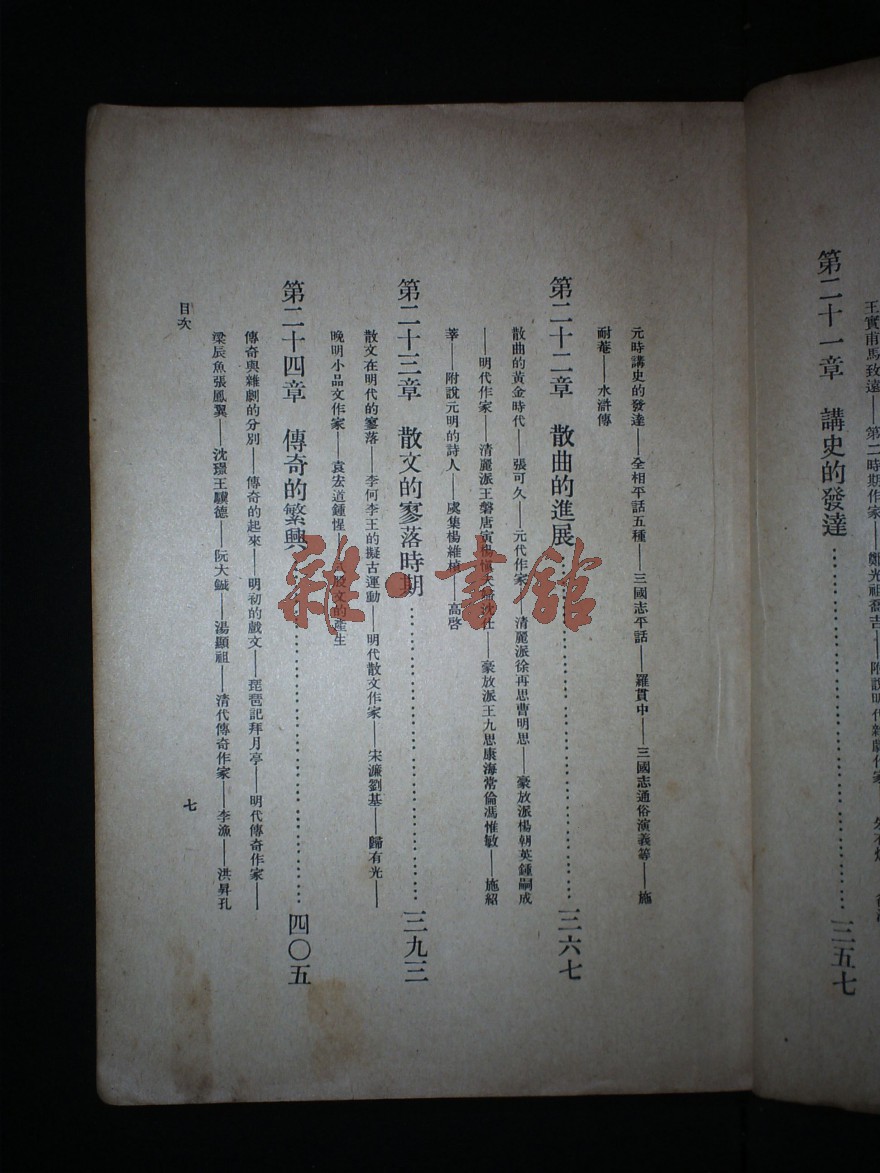 王實甫馬致遠——第二時期作家——鄭光祖喬吉——附說明代雜劇作家
第二十一章　講史的發達…………三五七
元時講史的發達——全相平話五種——三國志平話——羅貫中——三國志通俗演義等——施
耐菴——水滸傳
第二十二章　散曲的進展…………三六七
散曲的黃金時代——張可久——元代作家——清麗派徐再思曹明思——豪放派楊朝英鍾嗣成
——明代作家——清麗派王磐唐寅楊慎沈仕——豪放派王九思康海常倫馮惟敏——施紹
莘——附說元明的詩人——虞集楊維楨——高啓
第二十三章　散文的寥落時期…………三九三
散文在明代的寥落——李何李王的擬古運動——明代散文作家——宋濂劉基——歸有光——
晚明小品文作家——袁宏道鍾惺——八股文的產生
第二十四章　傳奇的繁興…………四〇五
傳奇與雜劇的分別——傳奇的起來——明初的戲文——琵琶記拜月亭——明代傳奇作家——
梁辰魚張鳳翼——沈璟王驥德——阮大鋮——湯顯祖——清代傳奇作家——李漁——洪昇孔
目次
七
雜·書館